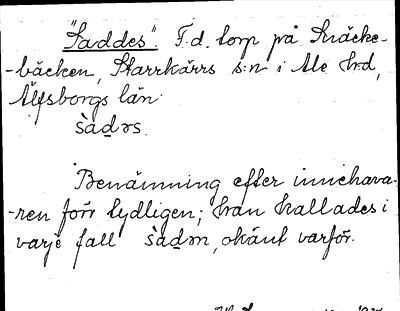 "Saddes". F.d. torp på Knäcke-
-bäcken, Starrkärrs s:n i Ale hd,
Älfsborgs län.
sàdəs.
Benämning efter innehava-
-ren förr tydligen; han kallades i
varje fall sàdm, okänt varför.